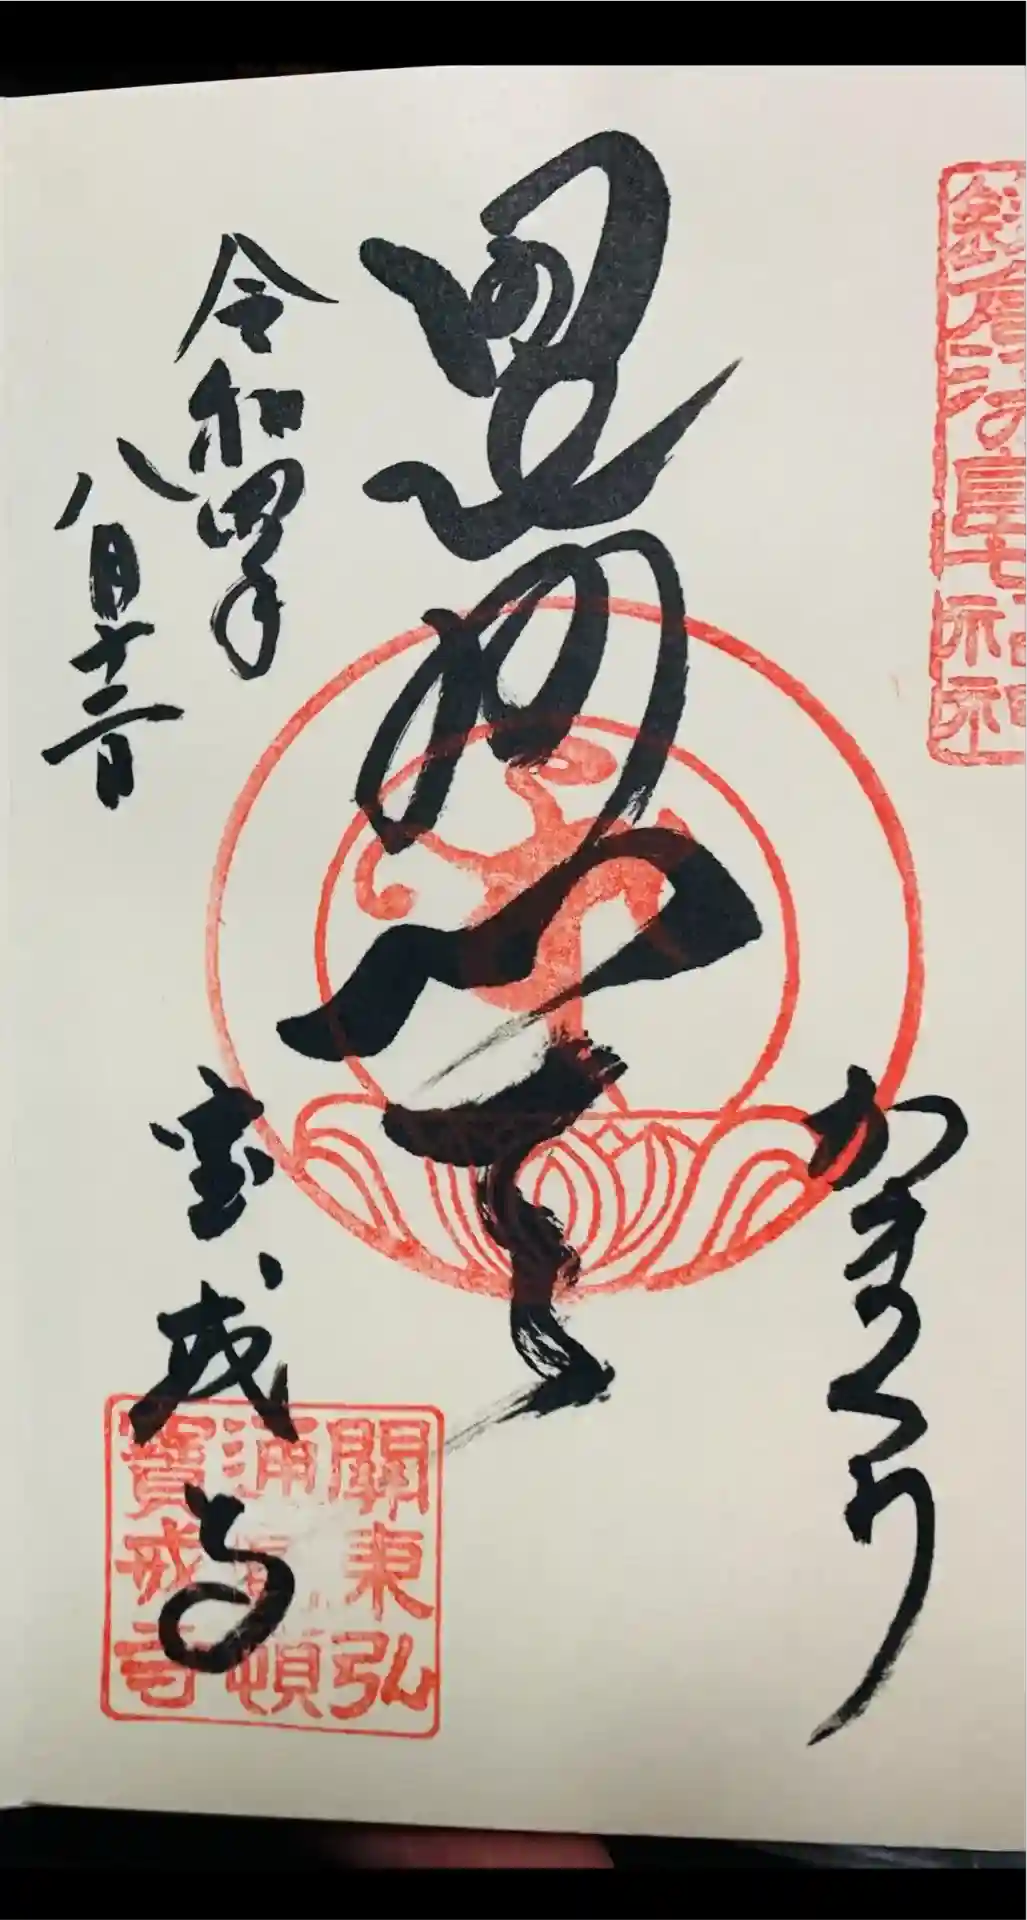 鎌倉江の島七福神
かまくら
毘沙門天
令和四年
八月十二日
宝戒寺
關東弘
通圓頓
寶戒寺